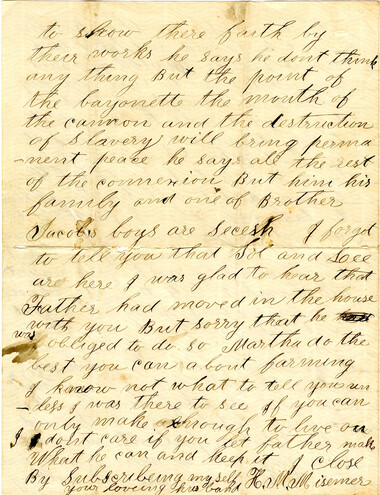 to show there faith by
their works he says he dont think
any thing But the point of
the bayonette the mouth of
the cannon and the destruction
of Slavery will bring perma
-nent peace he says all the rest
of the connexion But him his
family and one of Brother
Jacobs boys are secesh I forgot
to tell you that Sol and Lee
are here I was glad to hear that
Father had moved in the house
with you But sorry that he
was obliged to do so Martha do the
best you can about farming
I know not what to tell you un
-less I was there to see If you can
only make enough to live on
I dont care if you let father make
What he can and keep it I close
By Subscribeing my self H. M. Misemer
your loveing husband